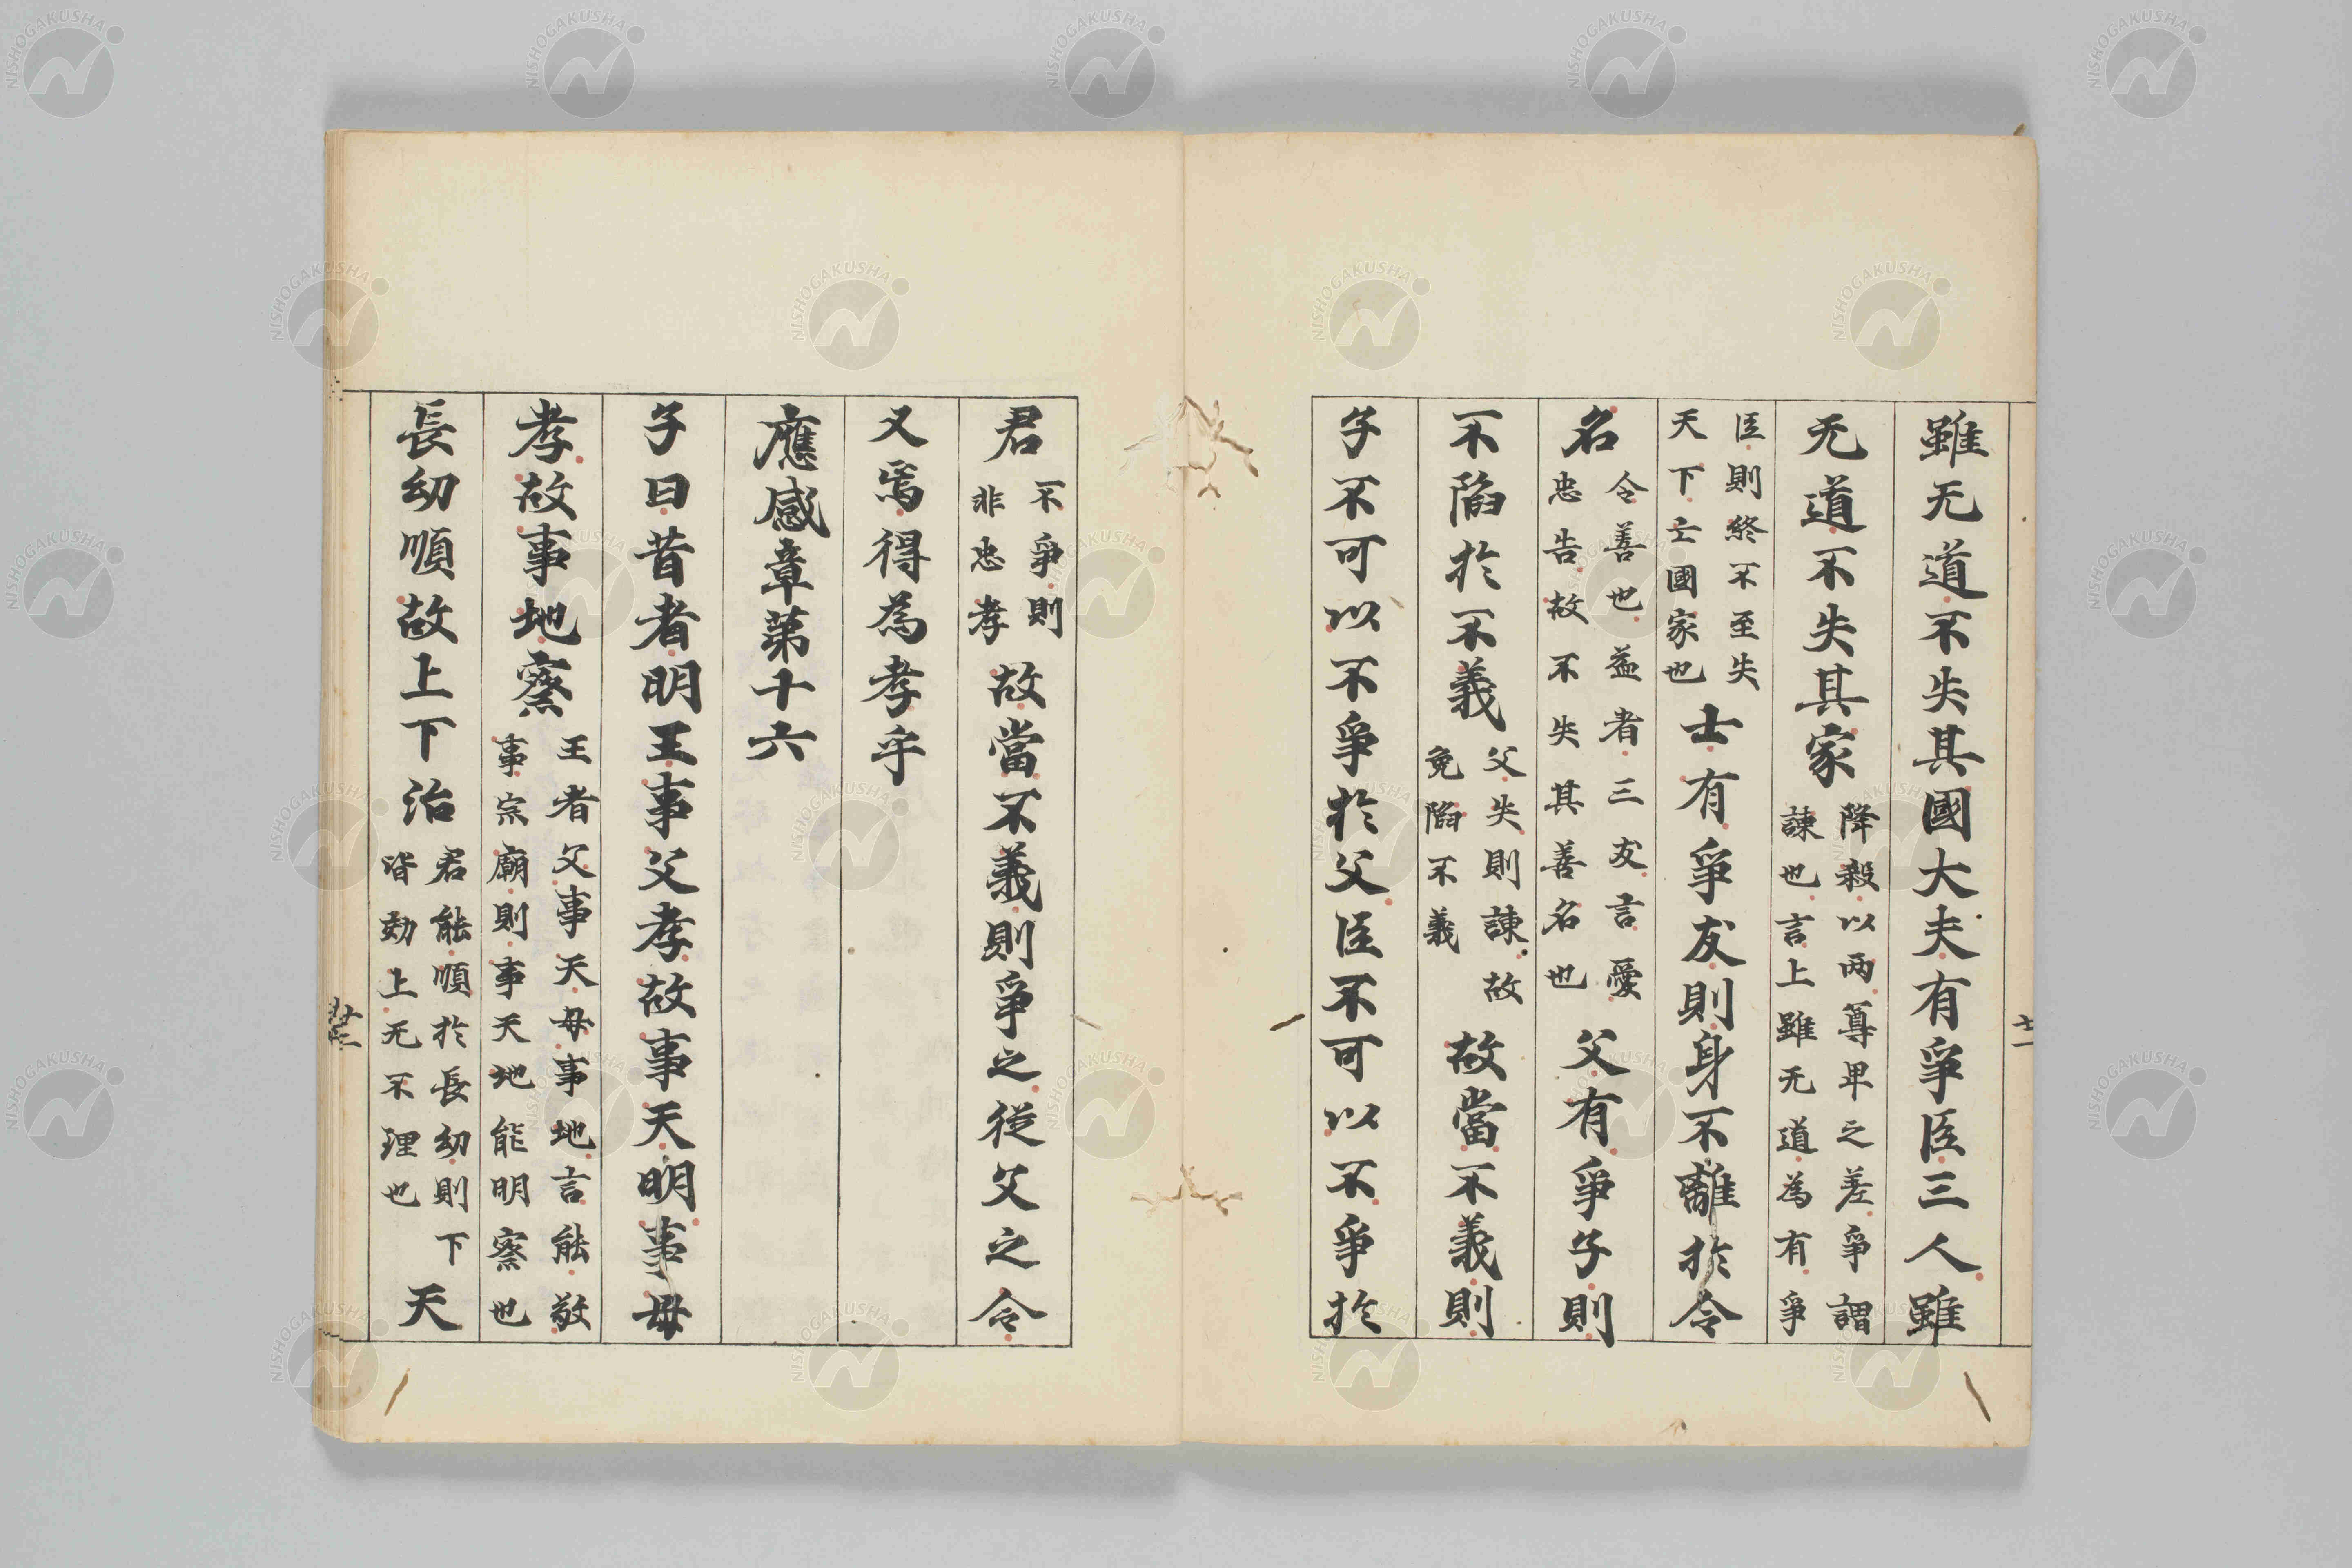 雖无道不失其國大夫有爭臣三人雖
无道不失其家
降殺以兩尊卑之差爭謂
諫也言上雖无道為有爭
臣則終不至失
天下亡國家也
士有爭友則身不離於令
名
令善也益者三友言愛
忠告故不失其善名也
父有爭子則
不陷於不義
父失則諫故
免陷不義
故當不義則
子不可以不爭於父臣不可以不爭於
君
不爭則
非忠孝
故當不義則爭之從父之令
又焉得為孝乎
應感章第十六
子曰昔者明王事父孝故事天明事母
孝故事地察
王者父事天母事地言能敬
事宗廟則事天地能明察也
長幼順故上下治
君能順於長幼則下
皆効上无不理也
天
NISHOGAKUSHA